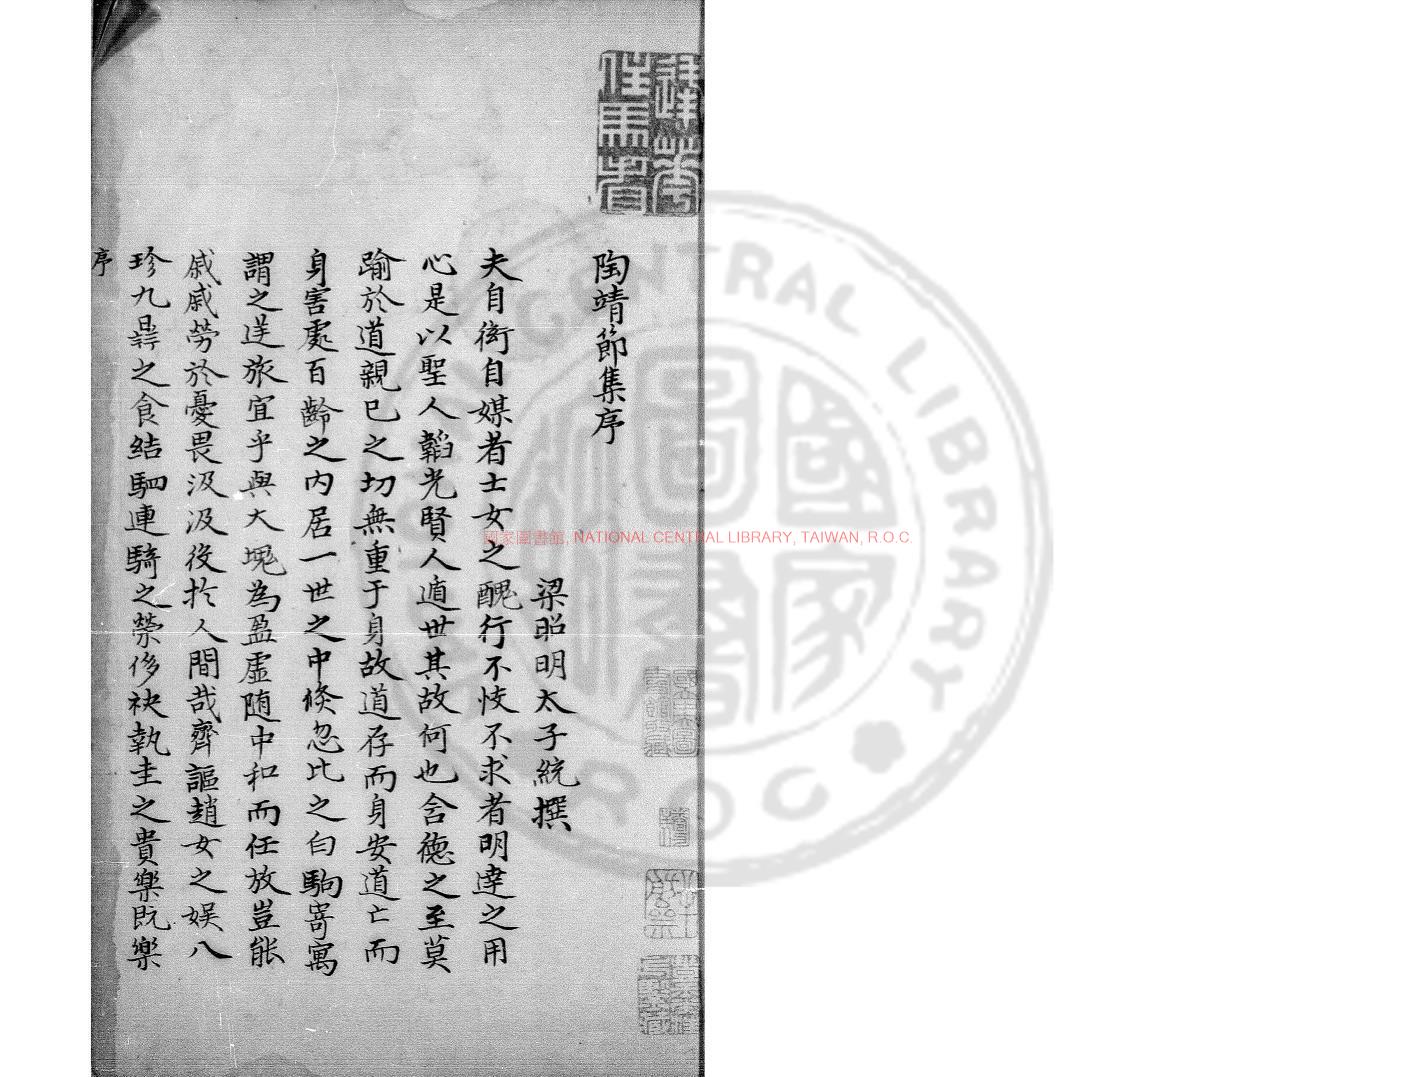 陶靖節集序
梁昭明太子統撰
夫自衒自媒者士女之醜行不忮不求者明達之用
心是以聖人韜光賢人遁世其故何也含德之至莫
踰於道親已之切無重于身故道存而身安道亡而
身害處百齡之内居一世之中倐忽比之白駒寄寓
謂之逆旅宜乎與大塊為盈虛随中和而任放豈能
戚戚勞於憂畏汲汲役扵人間哉齊謳趙女之娱八
珍九鼎之食結駟連騎之榮侈袂執圭之貴樂既樂
序
國家圖書館, NATIONAL CENTRAL LIBRARY, TAIWAN, R.O.C.
CENTRAL LIBRARY
R O C
國家圖書